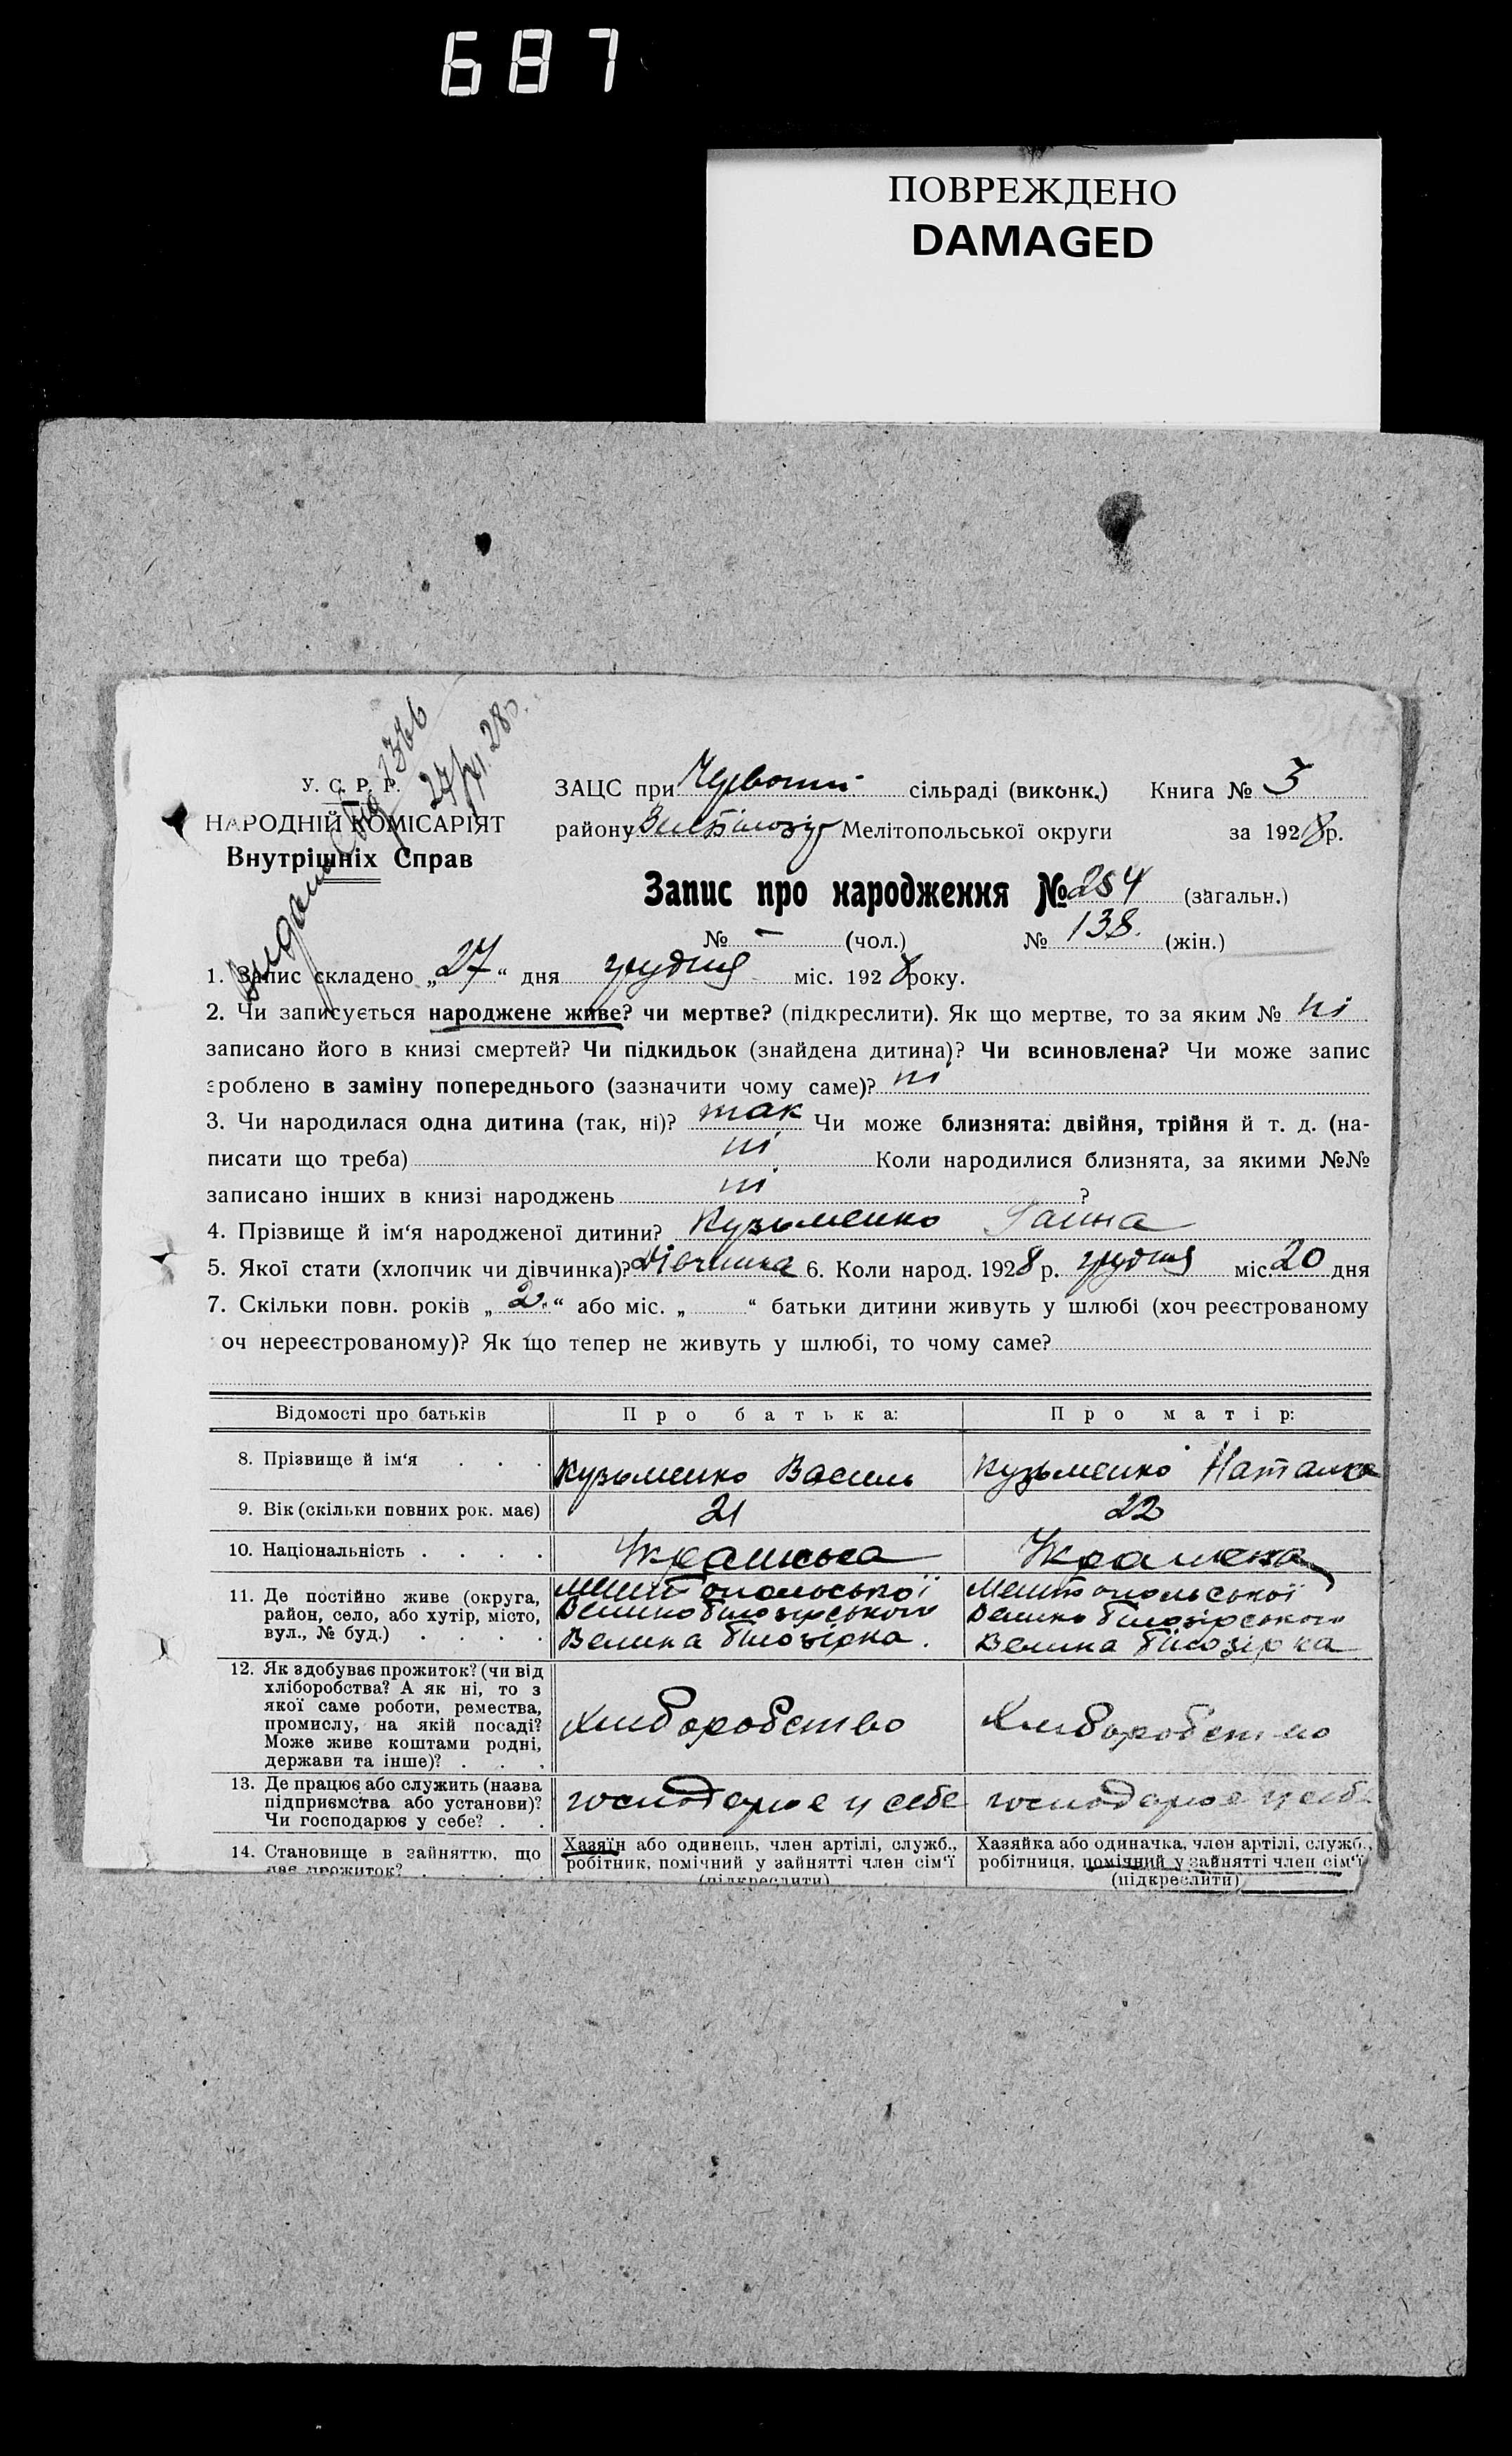 687
ПОВРЕЖДЕНО
DAMAGED
У. С. Р. Р.
НАРОДНІЙ КОМІСАРІЯТ
Внутрішніх Справ
ЗАЦС при сільраді (виконк.) Книга № 3
району Мелітопольської округи за 1928 р.
Запис про народження № 254 (загальн.)
№ - (чол.) № 138. (жін.)
1. Запис складено „27“ дня грудня міс. 1928 року.
2. Чи записується народжене живе? чи мертве? (підкреслити). Як що мертве, то за яким № ні
записано його в книзі смертей? Чи підкидьок (знайдена дитина)? Чи всиновлена? Чи може запис
зроблено в заміну попереднього (зазначити чому саме)? ні
3. Чи народилася одна дитина (так, ні)? так Чи може близнята: двійня, трійня й т. д. (на-
писати що треба) ні Коли народилися близнята, за якими №№
записано інших в книзі народжень ні ?
4. Прізвище й ім‘я народженої дитини? Кузьменко Ганна
5. Якої стати (хлопчик чи дівчинка)? Дівчинка 6. Коли народ. 1928 р. грудня міс. 20 дня
7. Скільки повн. років „2.“ або міс. „ “ батьки дитини живуть у шлюбі (хоч реєстрованому
оч нереєстрованому)? Як що тепер не живуть у шлюбі, то чому саме?
Відомості про батьків Про батька: Про матір:
8. Прізвище й ім‘я . . . Кузьменко Василь Кузьменко Наталка
9. Вік (скільки повних рок. має) 21 22
10. Національність . . . .
11. Де постійно живе (округа, Мелітопольської Мелітопольської
район, село, або хутір, місто, Великобілозірського Великобілозірського
вул., № буд.) . . . . Велика Білозірка. Велика Білозірка
12. Як здобуває прожиток? (чи від
хліборобства? А як ні, то з
якої саме роботи, ремества,
промислу, на якій посаді? Хліборобство Хліборобство
Може живе коштами родні,
держави та інше)? . . .
13. Де працює або служить (назва
підприємства або установи)? господарює у себе господарює у себе
Чи господарює у себе? . .
14. Становище в зайняттю, що Хазяїн або одинець, член артілі, служб., Хазяйка або одиначка, член артілі, служб.,
дає прожиток? . . . робітник, помічний у зайнятті член сім‘ї робітниця, помічний у зайнятті член сім‘ї
(підкреслити) (підкреслити)